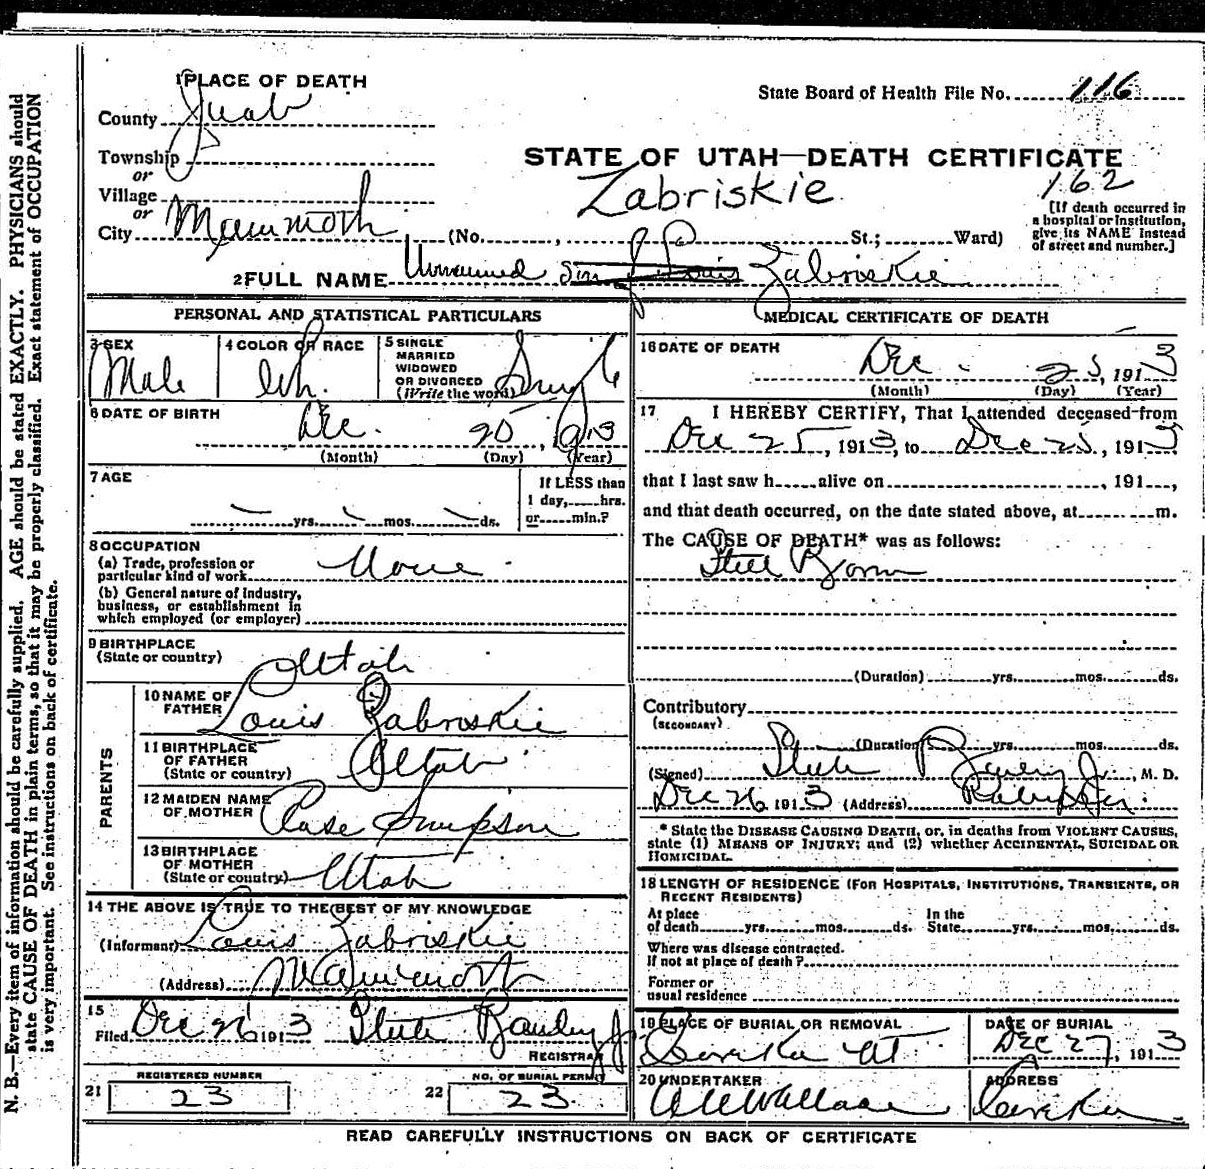 1 PLACE OF DEATH
State Board of Health File No. 116
County Juab
Township
or
STATE OF UTAH—DEATH CERTIFICATE
Village
or
Zabriskie
162
City Mammoth (No. , St.; Ward)
[If death occurred in
a hospital or institution,
give its NAME instead
of street and number.]
2 FULL NAME Unnamed Son of Louis Zabriskie
PERSONAL AND STATISTICAL PARTICULARS
3 SEX
Male
4 COLOR OR RACE
Wh.
5 SINGLE
MARRIED
WIDOWED
OR DIVORCED
(Write the word) Single
6 DATE OF BIRTH
Dec. 25, 1913
(Month) (Day) (Year)
7 AGE
yrs. mos. ds.
If LESS than
1 day, hrs.
or min.?
8 OCCUPATION
(a) Trade, profession or
particular kind of work None
(b) General nature of industry,
business, or establishment in
which employed (or employer)
9 BIRTHPLACE
(State or country) Utah
PARENTS
10 NAME OF
FATHER Louis Zabriskie
11 BIRTHPLACE
OF FATHER
(State or country) Utah
12 MAIDEN NAME
OF MOTHER Rose Simpson
13 BIRTHPLACE
OF MOTHER
(State or country) Utah
14 THE ABOVE IS TRUE TO THE BEST OF MY KNOWLEDGE
(Informant) Louis Zabriskie
(Address) Mammoth
15
Filed Dec 26 1913 Steele Bailey Jr
REGISTRAR
REGISTERED NUMBER
21 23
NO. OF BURIAL PERMIT
22 23
MEDICAL CERTIFICATE OF DEATH
16 DATE OF DEATH
Dec. 25, 1913
(Month) (Day) (Year)
17 I HEREBY CERTIFY, That I attended deceased from
Dec 25, 1913, to Dec 25, 1913
that I last saw h alive on , 191 ,
and that death occurred, on the date stated above, at m.
The CAUSE OF DEATH* was as follows:
Still Born
(Duration) yrs. mos. ds.
Contributory
(SECONDARY)
(Duration) yrs. mos. ds.
(Signed) Steele Bailey Jr., M. D.
Dec 26 1913 (Address)
* State the DISEASE CAUSING DEATH, or, in deaths from VIOLENT CAUSES,
state (1) MEANS OF INJURY; and (2) whether ACCIDENTAL, SUICIDAL OR
HOMICIDAL.
18 LENGTH OF RESIDENCE (FOR HOSPITALS, INSTITUTIONS, TRANSIENTS, OR
RECENT RESIDENTS)
At place
of death yrs. mos. ds.
In the
State yrs. mos. ds.
Where was disease contracted.
If not at place of death?
Former or
usual residence
19 PLACE OF BURIAL OR REMOVAL
Eureka Ut
DATE OF BURIAL
Dec 27, 1913
20 UNDERTAKER
Wallace
ADDRESS
Eureka
READ CAREFULLY INSTRUCTIONS ON BACK OF CERTIFICATE
N. B.—Every item of information should be carefully supplied. AGE should be stated EXACTLY. PHYSICIANS should
state CAUSE OF DEATH in plain terms, so that it may be properly classified. Exact statement of OCCUPATION
is very important. See instructions on back of certificate.